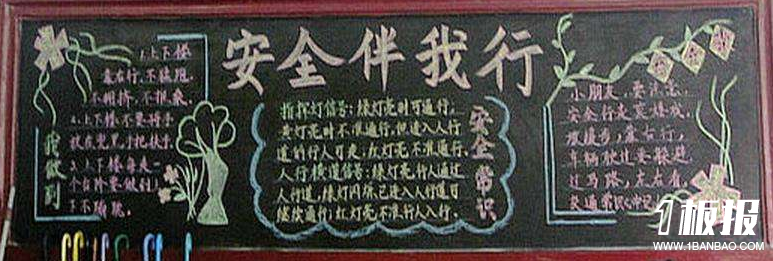 安全伴我行
我做到
1.上下楼
靠右行,不猛跑
不拥挤,不推桑。
2.上下楼不要将手
放在兜里,手把扶手.
3.上下楼每走一
个台阶要做到上
下不蹦跳。
安全常识
指挥灯信号:绿灯亮时可通行,
黄灯亮时不准通行,但进入人行
道的行人可走;红灯亮不准通行。
人行横道信号:绿灯亮,行人通过
人行道,绿灯闪烁已进入人行道可
继续通行;红灯亮不准行人入行。
小朋友,要注意,
安全行走莫嬉戏,
慢漫步,靠右行,
车辆驶过要躲避
过马路,左右看,
交通常识心中记
1板报
WWW.1BANBAO.COM